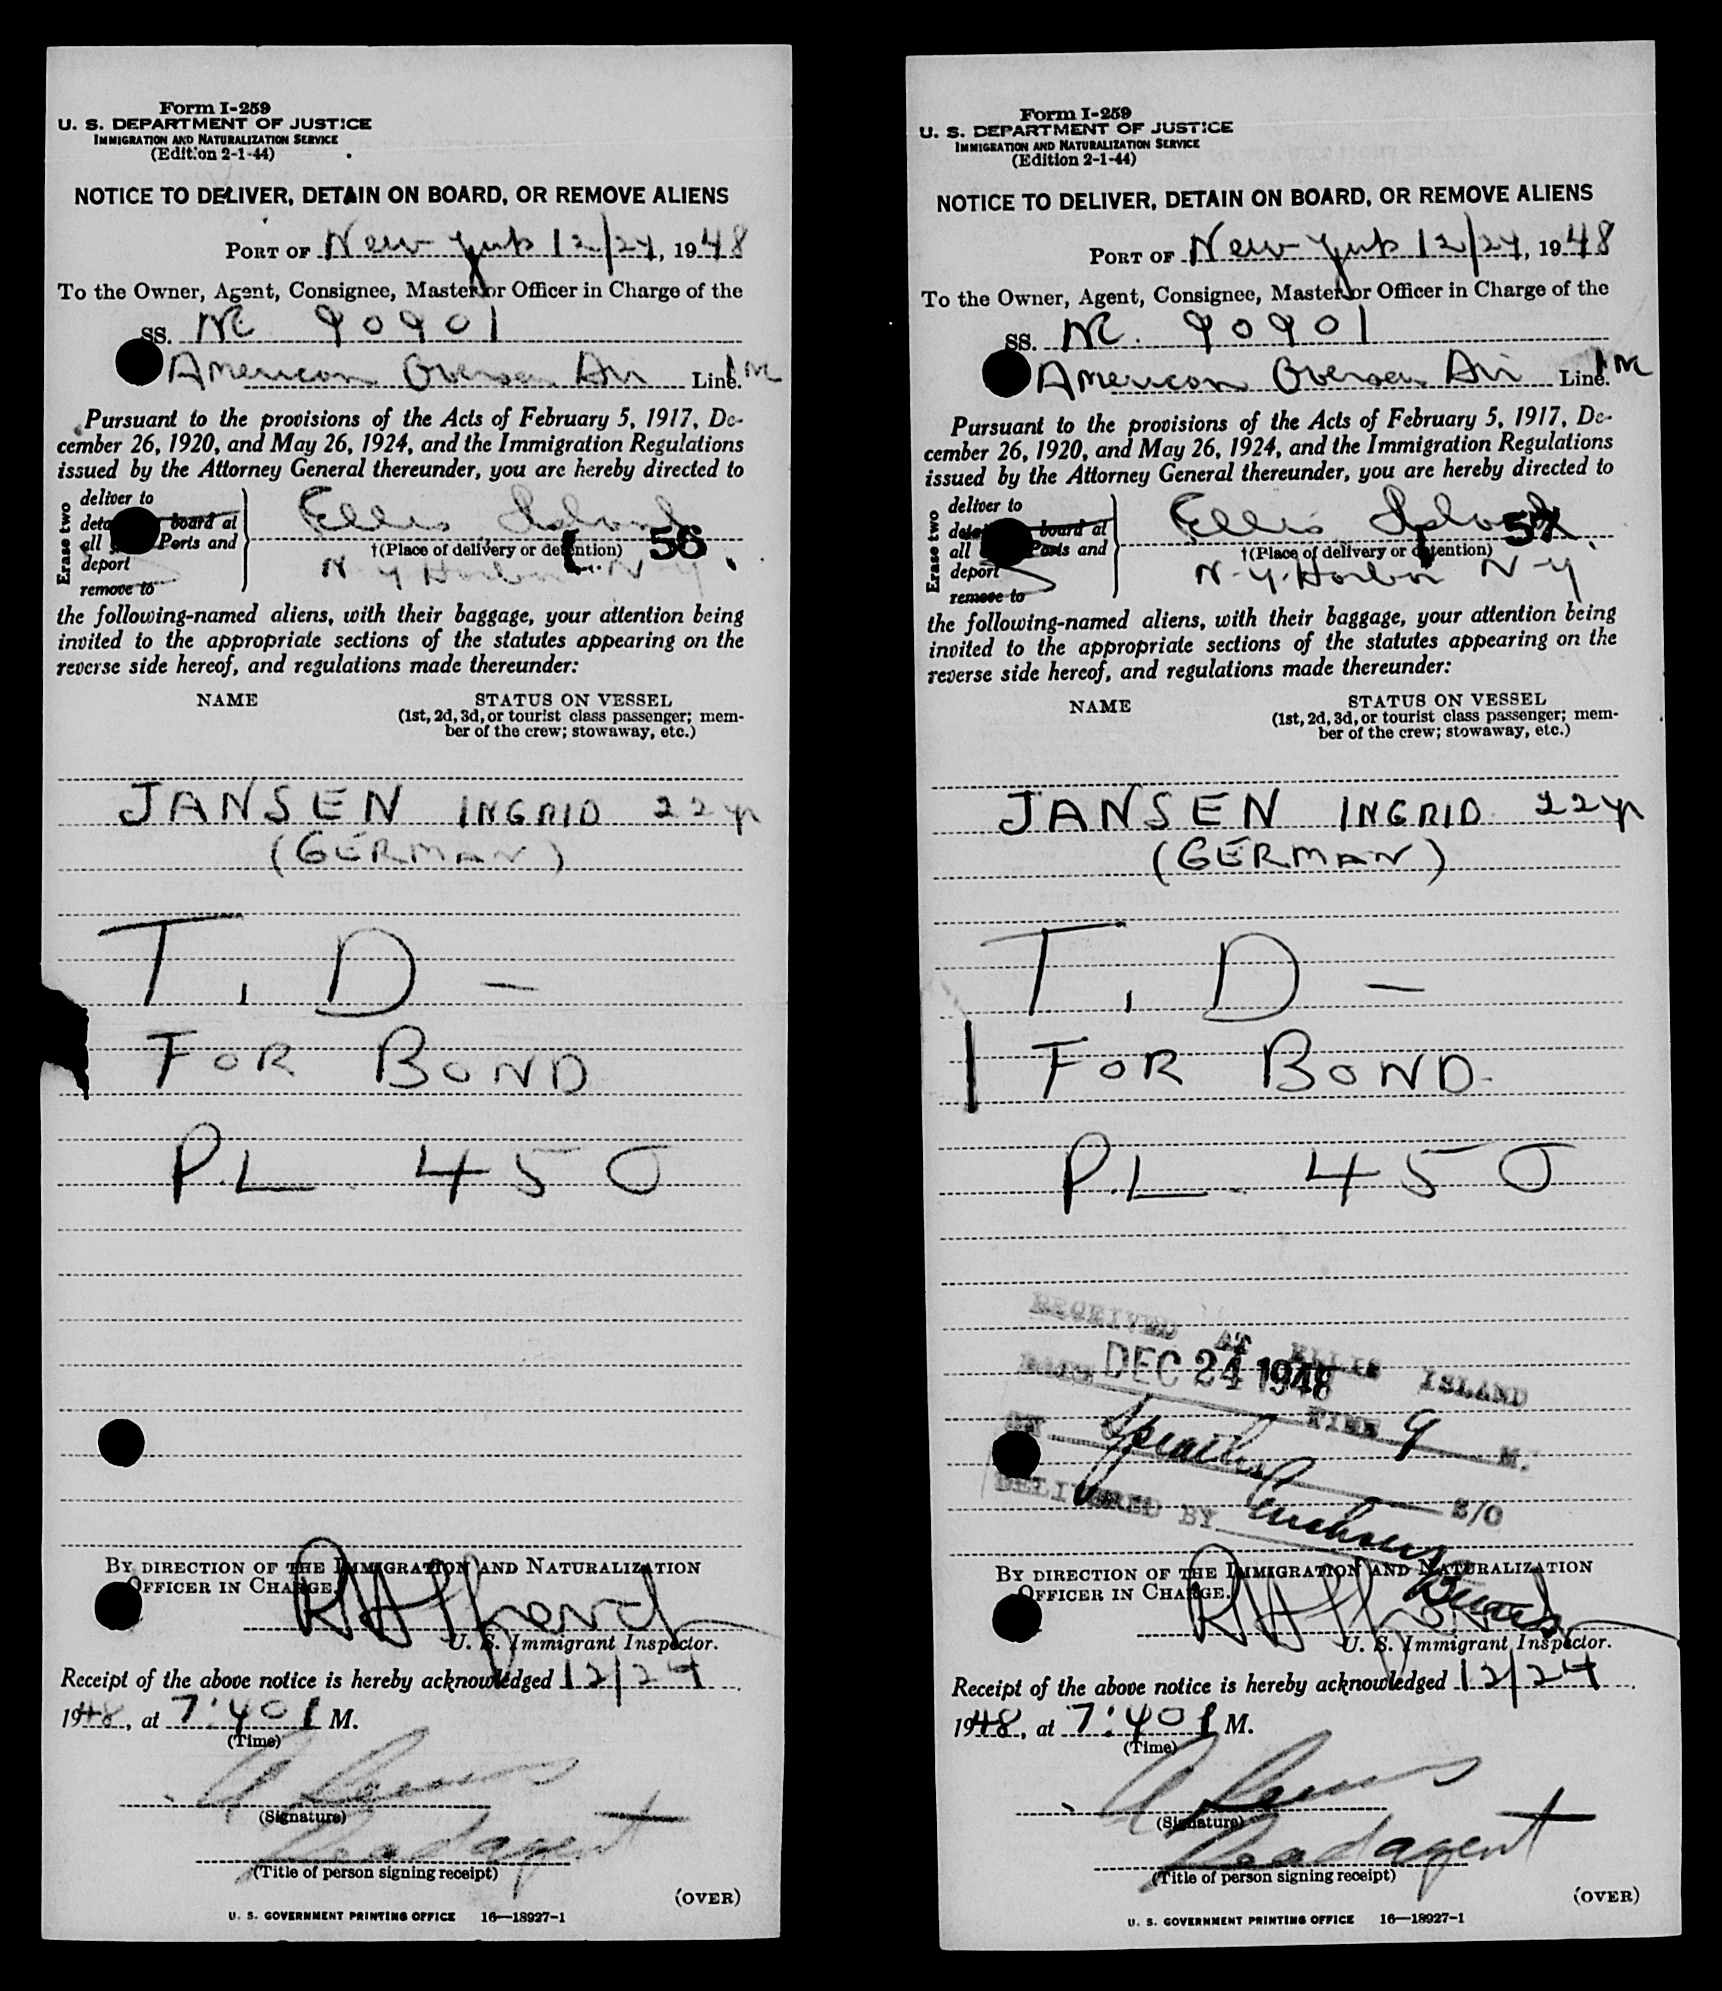 Form I-259
U. S. DEPARTMENT OF JUSTICE
IMMIGRATION AND NATURALIZATION SERVICE
(Edition 2-1-44)
NOTICE TO DELIVER, DETAIN ON BOARD, OR REMOVE ALIENS
PORT OF New York 12/24, 1948
To the Owner, Agent, Consignee, Master or Officer in Charge of the
SS. NC 90901
American Oversea Air Line.
Pursuant to the provisions of the Acts of February 5, 1917, De-
cember 26, 1920, and May 26, 1924, and the Immigration Regulations
issued by the Attorney General thereunder, you are hereby directed to
Erase two
deliver to
board at
all Ports and
deport
remove to
Ellis Island 56
†(Place of delivery or detention)
N Y Harbor N Y
the following-named aliens, with their baggage, your attention being
invited to the appropriate sections of the statutes appearing on the
reverse side hereof, and regulations made thereunder:
NAME STATUS ON VESSEL
(1st, 2d, 3d, or tourist class passenger; mem-
ber of the crew; stowaway, etc.)
JANSEN INGRID 22 yr
(GERMAN)
T. D -
FOR BOND
P.L. 450
BY DIRECTION OF THE IMMIGRATION AND NATURALIZATION
OFFICER IN CHARGE.
U. S. Immigrant Inspector.
Receipt of the above notice is hereby acknowledged 12/24
1948, at 7:40 M.
(Time)
(Signature)
Loadagent
(Title of person signing receipt)
(OVER)
U. S. GOVERNMENT PRINTING OFFICE 16—18927-1
Form I-259
U. S. DEPARTMENT OF JUSTICE
IMMIGRATION AND NATURALIZATION SERVICE
(Edition 2-1-44)
NOTICE TO DELIVER, DETAIN ON BOARD, OR REMOVE ALIENS
PORT OF New York 12/24, 1948
To the Owner, Agent, Consignee, Master or Officer in Charge of the
SS. NC. 90901
American Oversea Air Line.
Pursuant to the provisions of the Acts of February 5, 1917, De-
cember 26, 1920, and May 26, 1924, and the Immigration Regulations
issued by the Attorney General thereunder, you are hereby directed to
Erase two
deliver to
board at
all Ports and
deport
remove to
Ellis Island 57
†(Place of delivery or detention)
N-Y. Harbor N-Y
the following-named aliens, with their baggage, your attention being
invited to the appropriate sections of the statutes appearing on the
reverse side hereof, and regulations made thereunder:
NAME STATUS ON VESSEL
(1st, 2d, 3d, or tourist class passenger; mem-
ber of the crew; stowaway, etc.)
JANSEN INGRID 22 yr
(GERMAN)
T. D -
FOR BOND.
P.L. 450
RECEIVED AT ELLIS ISLAND
DATE DEC 24 1948 TIME 9 M.
BY S/O
DELIVERED BY
BY DIRECTION OF THE IMMIGRATION AND NATURALIZATION
OFFICER IN CHARGE.
U. S. Immigrant Inspector.
Receipt of the above notice is hereby acknowledged 12/24
1948, at 7:40 M.
(Time)
(Signature)
Loadagent
(Title of person signing receipt)
(OVER)
U. S. GOVERNMENT PRINTING OFFICE 16—18927-1